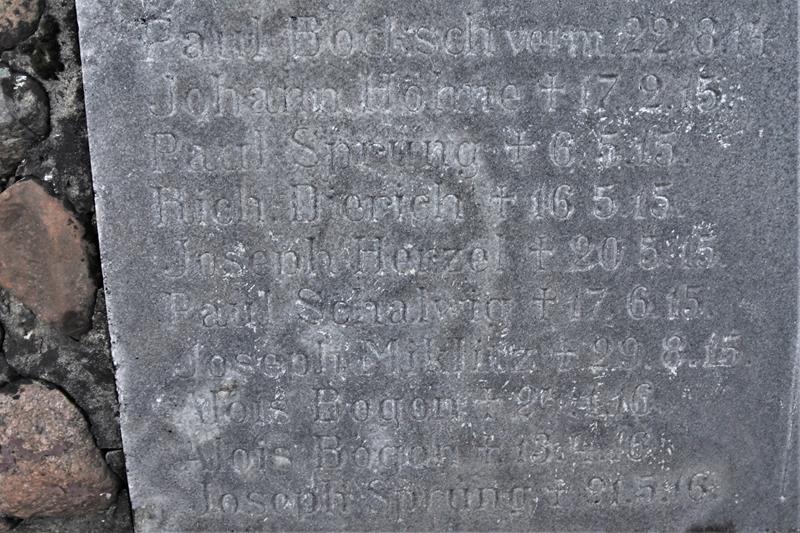 Paul Bocksch verm. 22.8.14.
Johann Höhne † 17.2.15.
Paul Sprung † 6.5.15.
Rich. Dierich † 16.5.15.
Joseph Herzel † 20.5.15.
Paul Schalwig † 17.6.15.
Joseph Miklitz † 29.8.15.
Alois Bogon †
Alois Bogon † 13.4.16.
Joseph Sprung † 21.5.16.